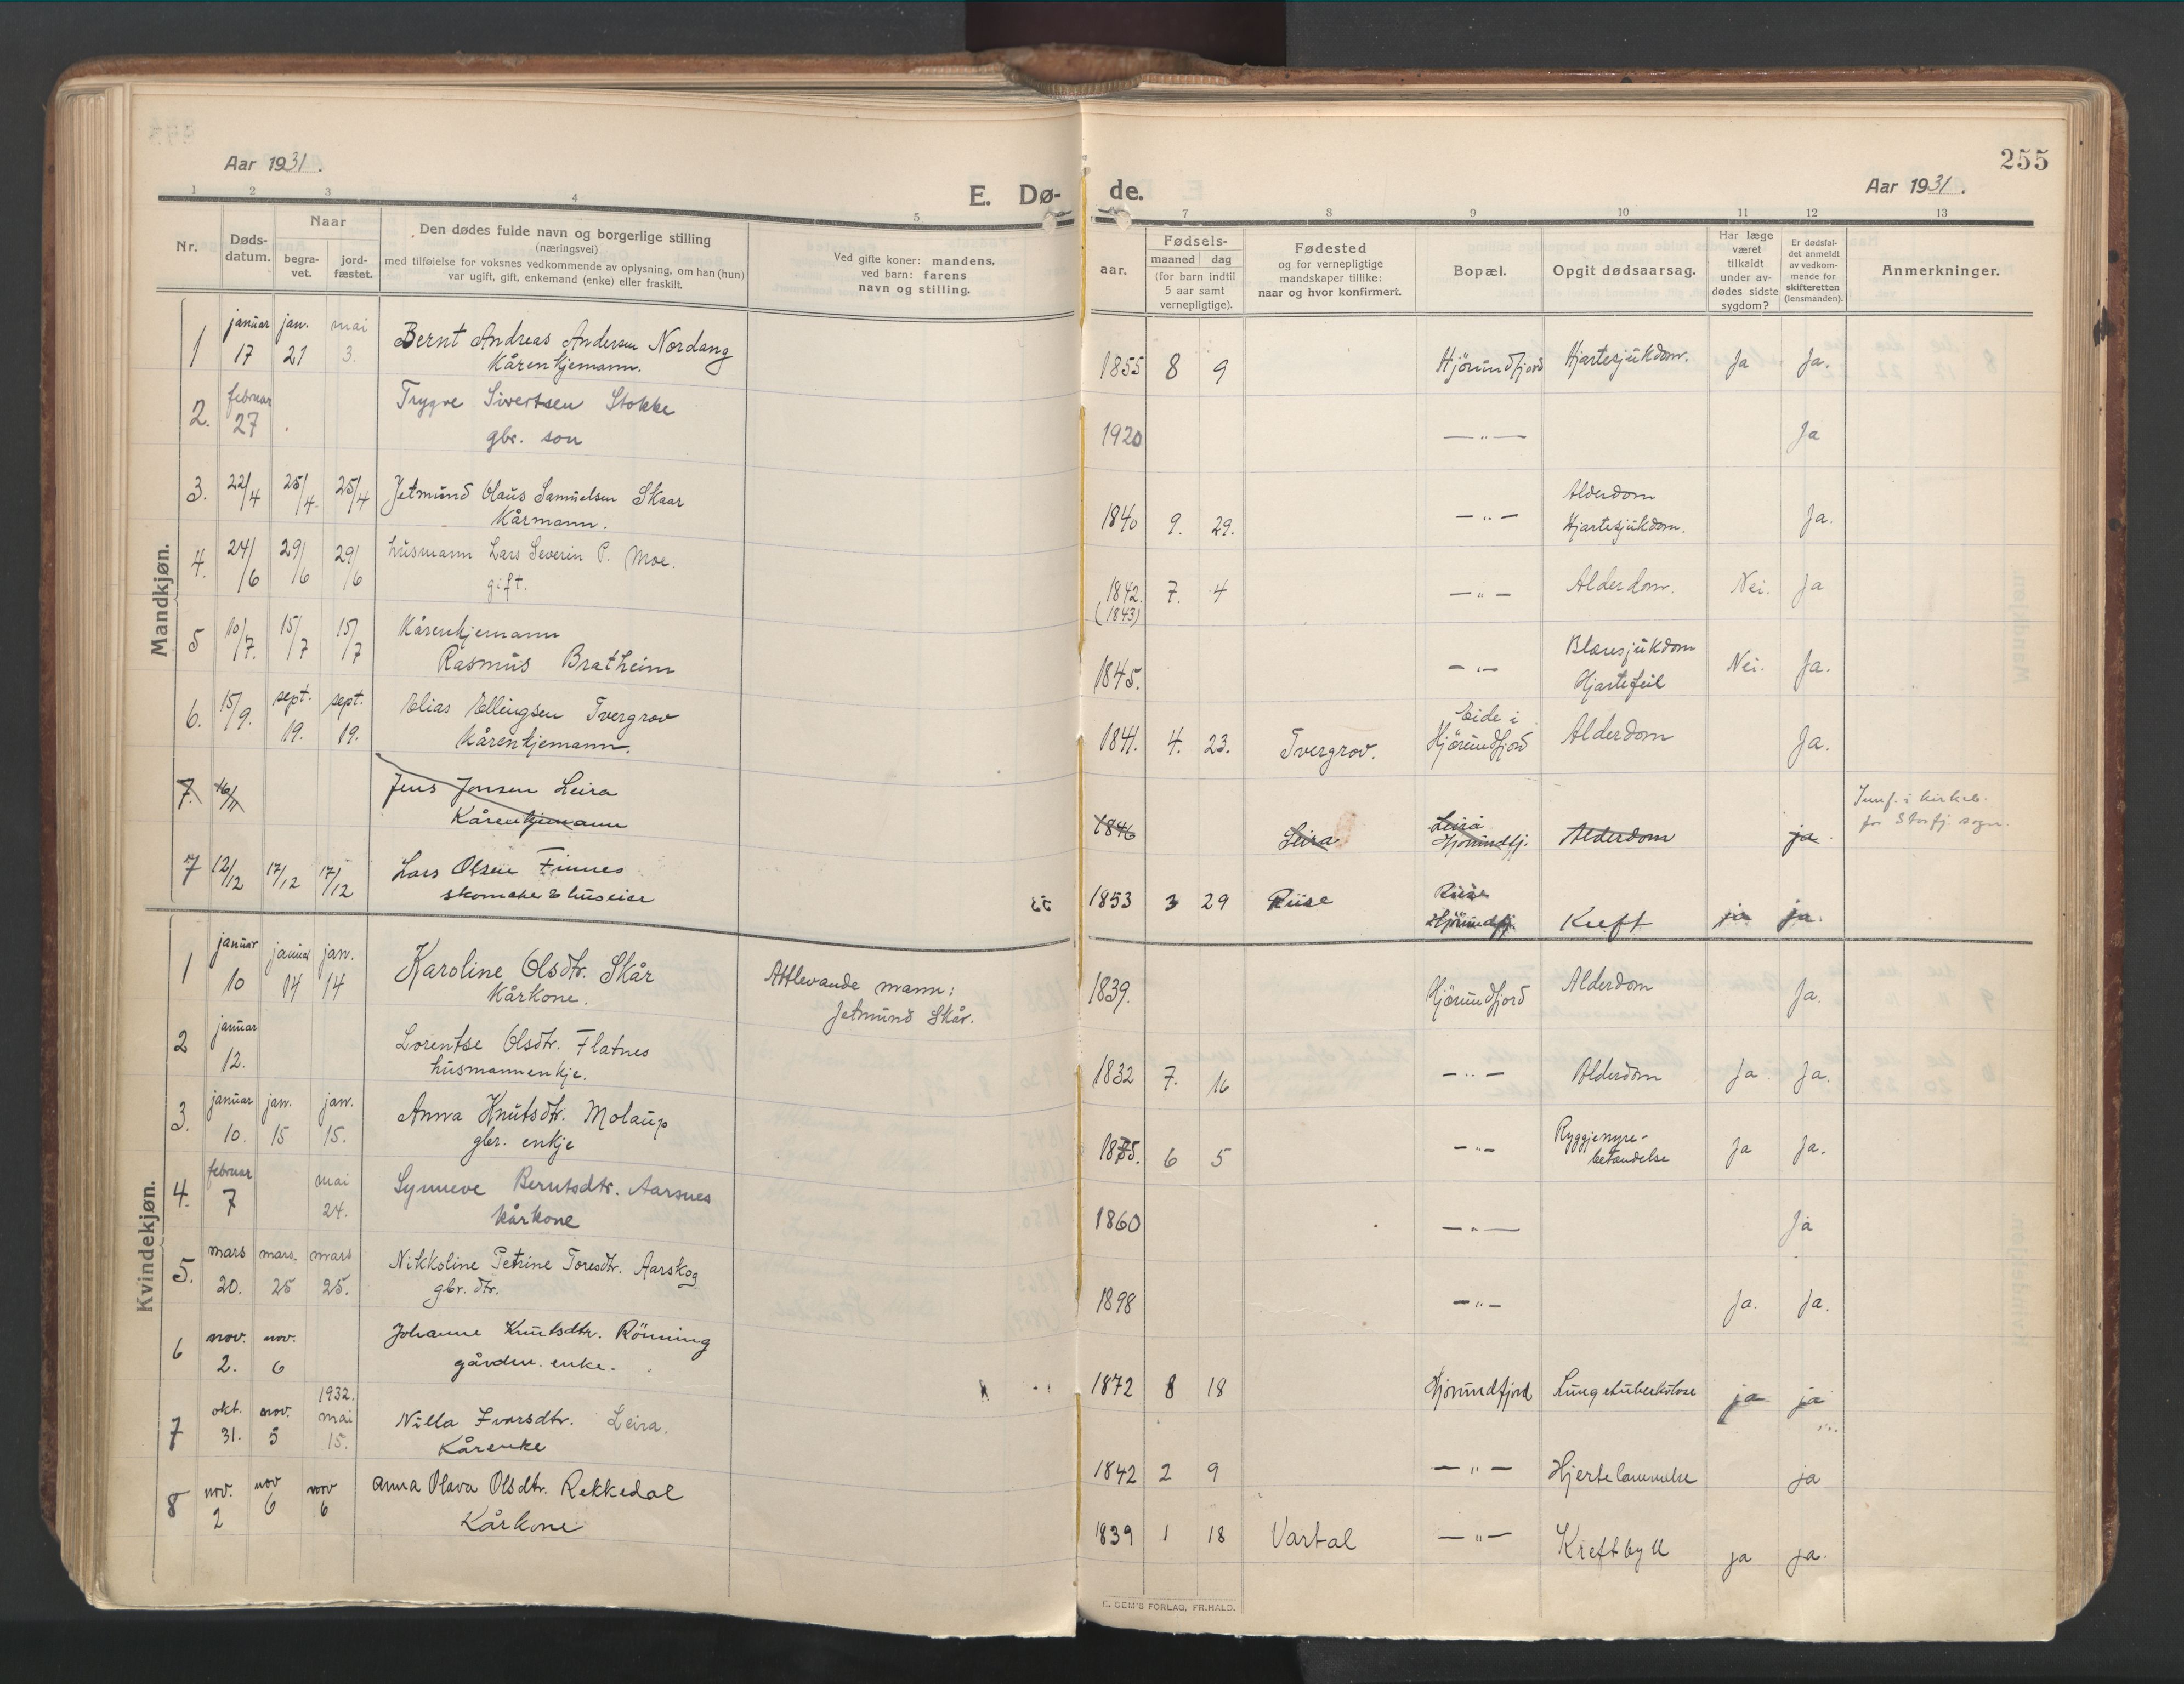 255
Aar 1931.
Aar 1931.
E. Dø- de.
1 2 3 4 5 7 8 9 10 11 12 13
Nr.
Døds-
datum.
Naar
begra-
vet.
jord-
fæstet.
Den dødes fulde navn og borgerlige stilling
(næringsvei)
med tilføielse for voksnes vedkommende av oplysning, om han (hun)
var ugift, gift, enkemand (enke) eller fraskilt.
Ved gifte koner: mandens.
ved barn: farens
navn og stilling.
aar.
Fødsels-
maaned dag
(for barn indtil
5 aar samt
vernepligtige).
Fødested
og for vernepligtige
mandskaper tillike:
naar og hvor konfirmert.
Bopæl.
Opgit dødsaarsag.
Har læge
været
tilkaldt
under av-
dødes sidste
sygdom?
Er dødsfal-
det anmeldt
av vedkom-
mende for
skifteretten
(lensmanden).
Anmerkninger.
Mandkjøn.
1 januar 17 jan. 21 mai 3. Bernt Andreas Andersen Nordang
Kårenkjemann.
1855 8 9 Hjørundfjord Hjartesjukdom. Ja Ja.
2. februar 27 Trygve Sivertsen Stokke
gbr. son
1920 — " — Ja
3. 22/4 25/4 25/4 Jetmund Olaus Samuelsen Skaar
Kårmann.
1840 9. 29. — " — Alderdom
Hjartesjukdom. Ja.
4. 24/6 29/6 29/6 husmann Lars Severin P. Moe.
gift.
1842. 7. 4 — " — Alderdom. Nei. Ja
(1843)
5 10/7. 15/7 15/7 Kårenkjemann
Rasmus Bratheim
1845. — " — Blæresjukdom
Hjartefeil Nei. Ja.
6. 15/9. sept. 19. sept. 19. Elias Ellingsen Tvergrov
Kårenkjemann.
1841. 4. 23. Tvergrov. Eide i
Hjørundfjord Alderdom Ja.
7. 16/11 Jens Jonsen Leira
Kårenkjemann
1846 Leira Leira
Hjørundfj. Alderdom ja. Innf. i kirkeb.
for Storfj. sogn.
7 12/12 17/12 17/12 Lars Olsen Finnes
skomaker & huseier
1853 3 29 Riise Riise
Hjørundfj. Kreft ja ja.
Kvindekjøn.
1 januar 10 januar 14 jan. 14 Karoline Olsdtr. Skår
Kårkone.
Attlevande mann:
Jetmund Skår.
1839. Hjørundfjord Alderdom Ja.
2 januar 12. Lorentse Olsdtr. Flatnes
husmannenkje.
1832 7. 16 — " — Alderdom Ja. Ja.
3. januar 10. jan. 15 jan. 15. Anna Knutsdtr. Molaup
gbr. enkje
1875. 6 5 — " — Ryggjenyre-
betændelse Ja Ja.
4. februar 7 mai 24. Synneve Berntsdtr. Aarsnes
Kårkone
1860 — " — Ja
5. mars 20. mars. 25 mars 25. Nikkoline Petrine Toresdtr. Aarskog
gbr. dtr.
1898 — " — Ja. Ja.
6 nov. 2. nov. 6 Johanne Knutsdtr. Rönning
gårdm. enke.
1872 8 18 Hjørundfjord Lungetuberkulose ja ja
7 okt. 31. nov. 5 1932. mai 15. Nilla Ivarsdtr. Leira.
Kårenke
1842 2 9 — " — Hjertelammelse ja
8 nov. 2 nov 6 nov 6 Anna Olava Olsdtr. Rekkedal
Kårkone
1839 1 18 Vartal — " — Kreftbyll ja ja.
E. SEM'S FORLAG, FR.HALD.